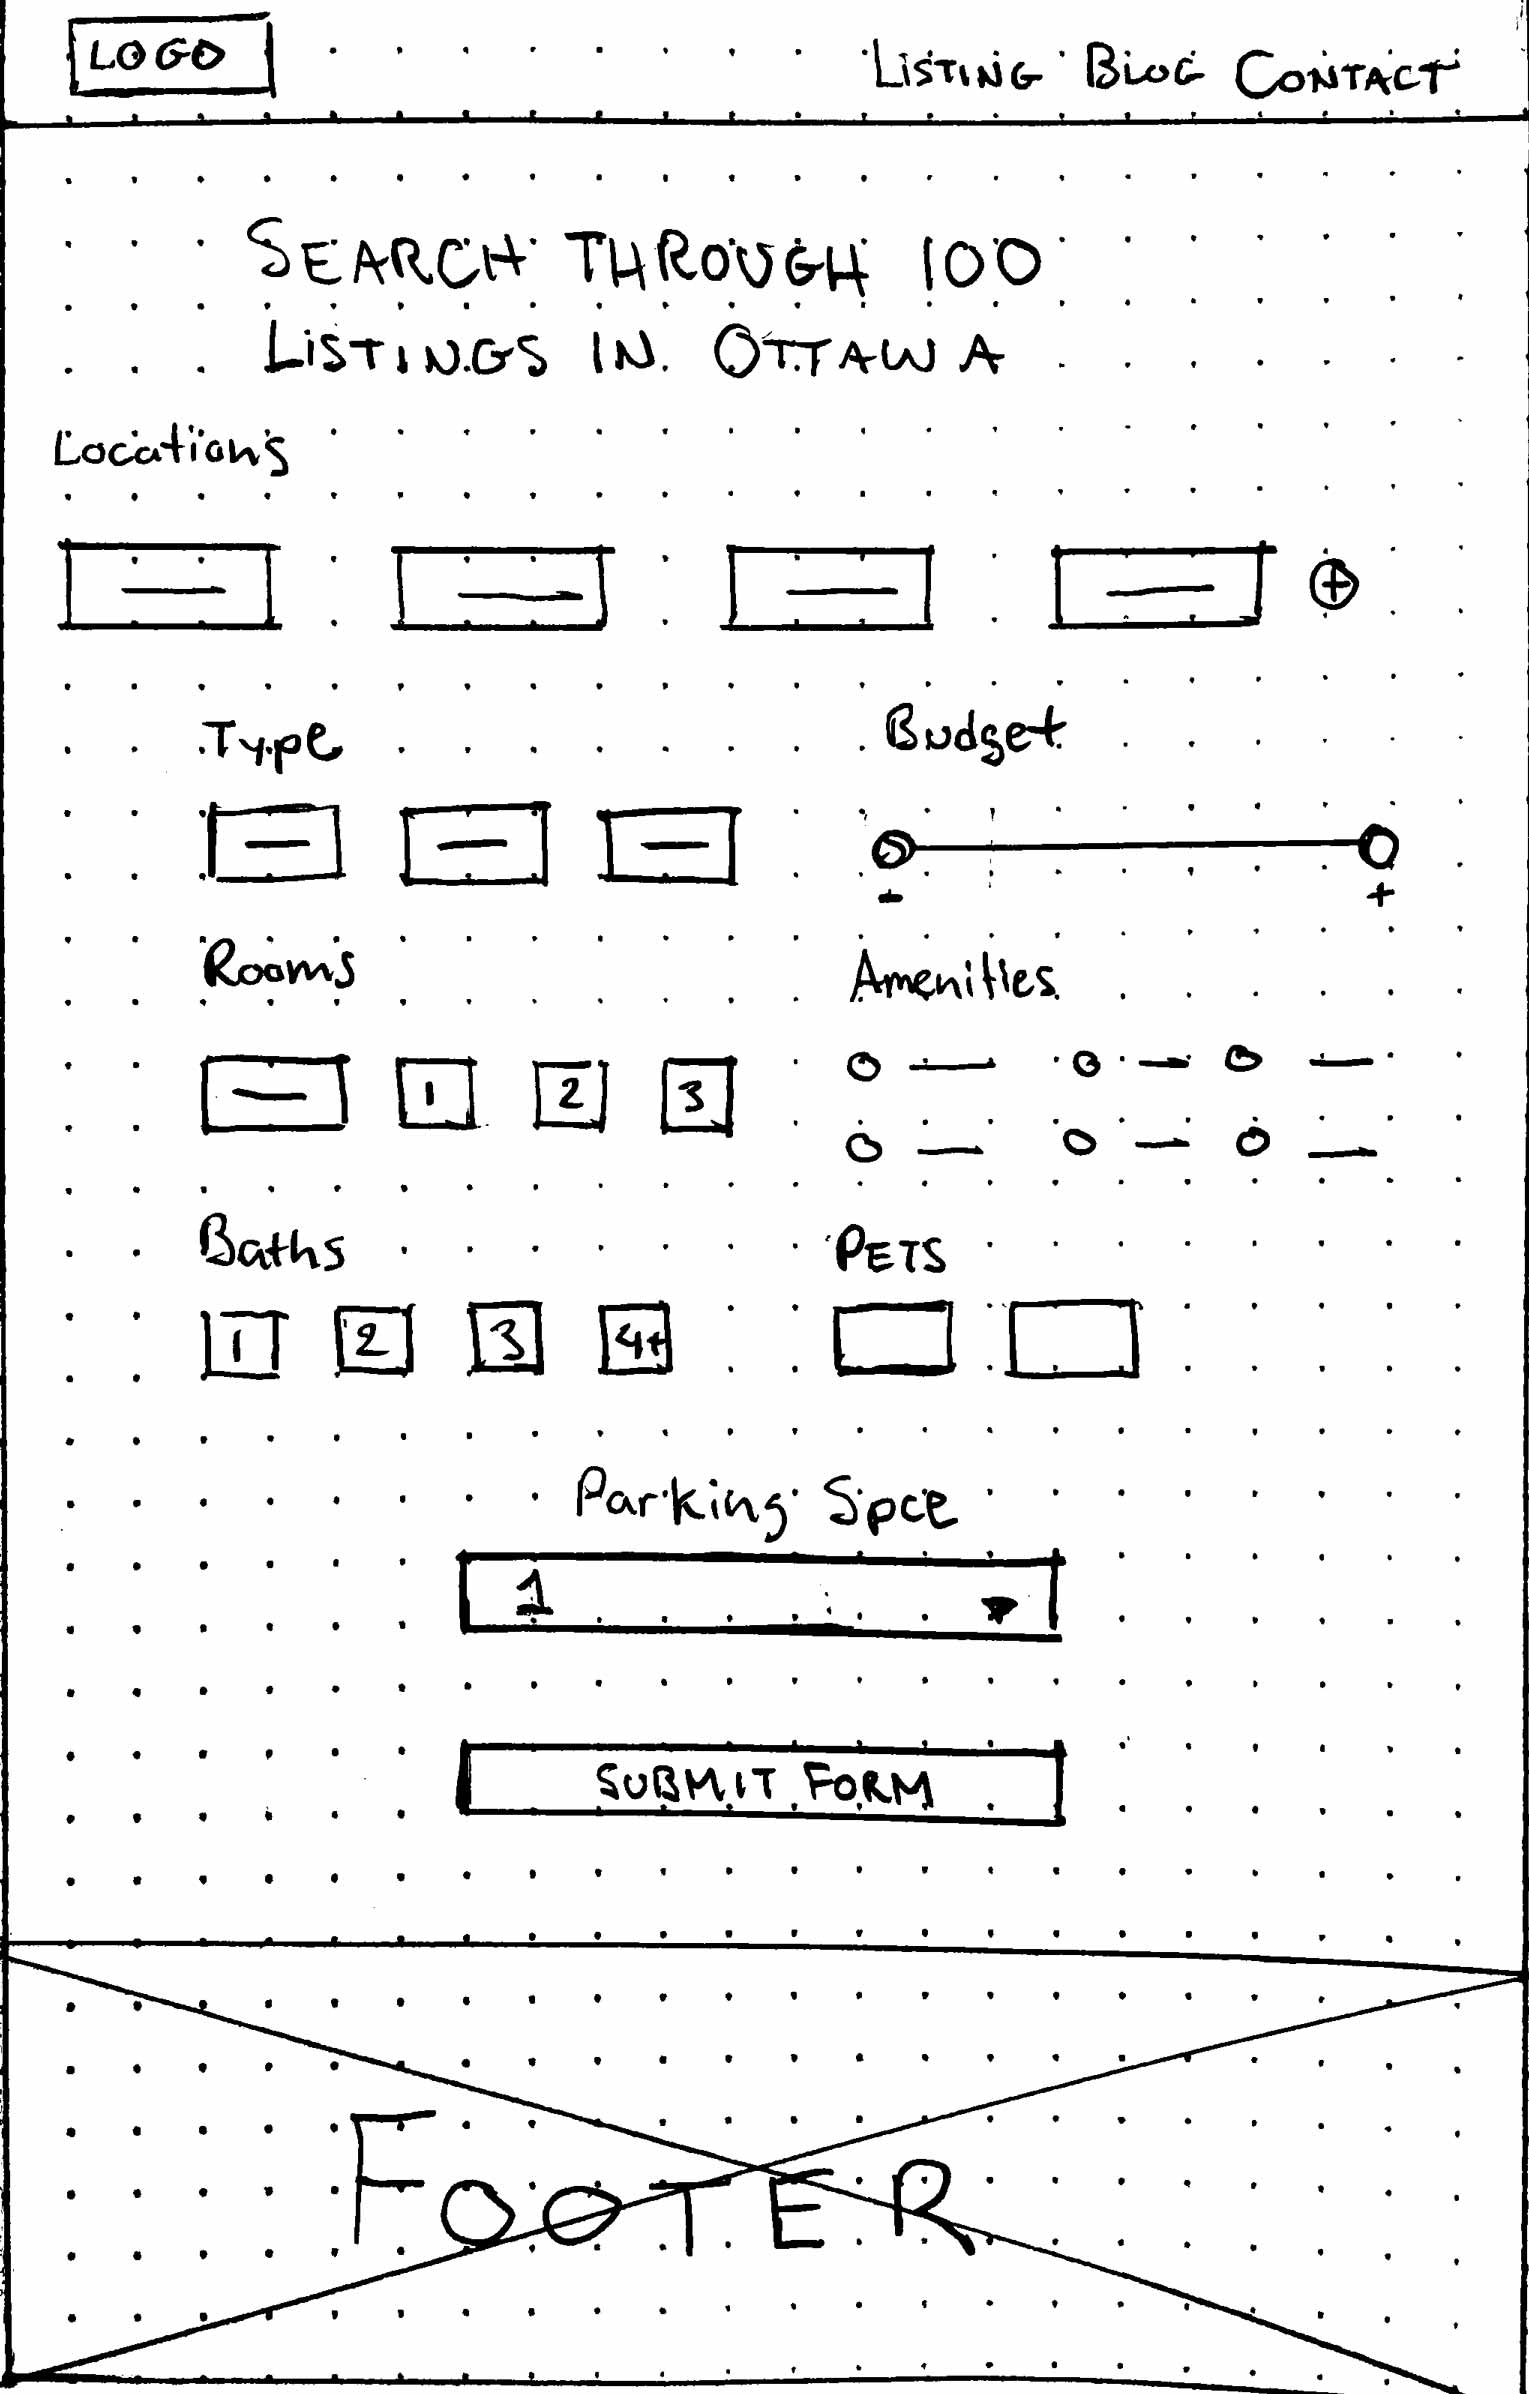 LOGO
LiSTiNG BLOG CONTACT
SEARCH THROUGH 100
LiSTINGS IN OTTAWA
Locations
Type
Budget
- +
Rooms
Amenities
1 2 3
Baths
PETS
1 2 3 4+
Parking Spce
1
SUBMIT FORM
FOOTER